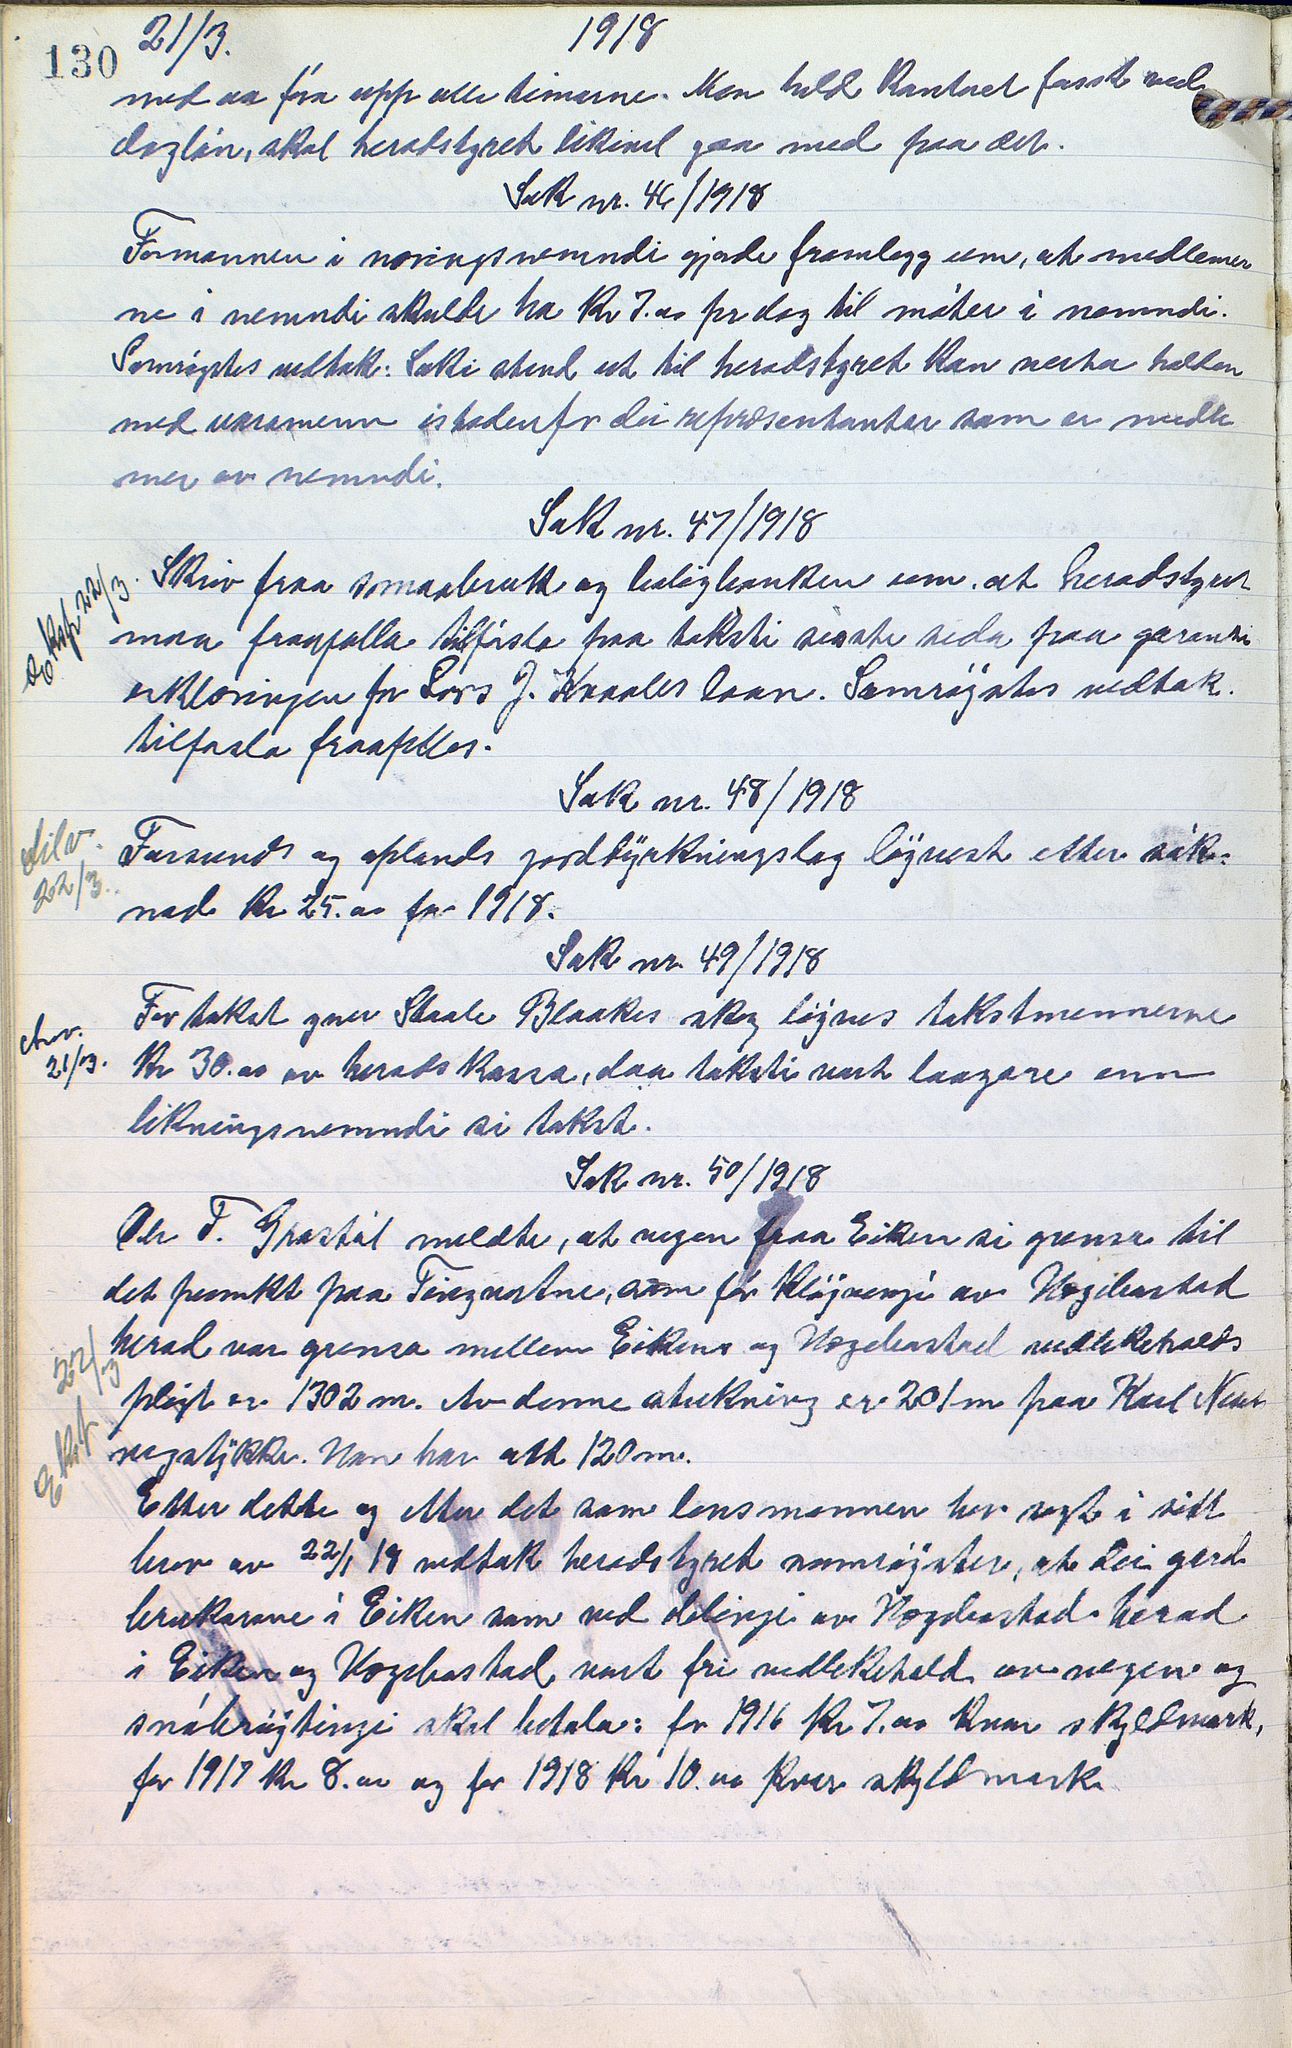 130 21/3. 1918
med aa föra upp alle timarne. Men held Kantoret fasst ved
daglön, skal heradstyret likevel gaa med paa det.
Sak nr. 46/1918
Formannen i næringsnemndi gjorde framlegg um, at medlemer
ne i nemndi skulde ha Kr 7.00 pr dag til möter i nemndi.
Samröystes vedtak: Saki stend ut til heradstyret kan verta halden
med varamenn istadenfor dei representantar som er medle
mer av nemndi.
Sak nr. 47/1918
Ekskp 22/3.
Skriv fraa smaabruk og bustigbanken um at heradstyret
maa fraafalla tilföisla paa taksti sisste sida paa garanti
erklæringen for Lars J. Kvaales laan. Samröystes vedtak.
tilföisla fraafelles.
Sak nr. 48/1918
tilv. 22/3.
Farsunds og oplands jorddyrkningslag löyvest etter sök-
nad Kr 25.00 for 1918.
Sak nr. 49/1918
anv. 21/3.
For takst yver Staale Blaakes skog löyves takstmennerne
Kr 30.00 av heradskassa, daa taksti vart laagare enn
likningsnemndi si takst.
Sak nr. 50/1918
Ekskp 22/3
Ole T. Grastöl meldte, at vegen fraa Eiken si grensa til
det punkt paa Tingvatne, som för klöyvingi av Hægebostad
herad var grensa millom Eikens og Hægebostad vedlikehalds
pligt er 1302 m. Av denne strekning er 201 m paa Karl Neset
vegstykke. Han har att 120 m.
Etter dette og etter det som lensmannen hev sagt i sitt
brev av 22/1 18 vedtok heradstyret samröystes, at dei gard
brukarane i Eiken som ved delingi av Hægebostad herad
i Eiken og Hægebostad vart fri vedlikehald av vegen og
snöbröytingi skal betala: for 1916 Kr 7.00 kvar skyldmark,
for 1917 Kr 8.00 og for 1918 Kr 10.00 kvar skyldmark